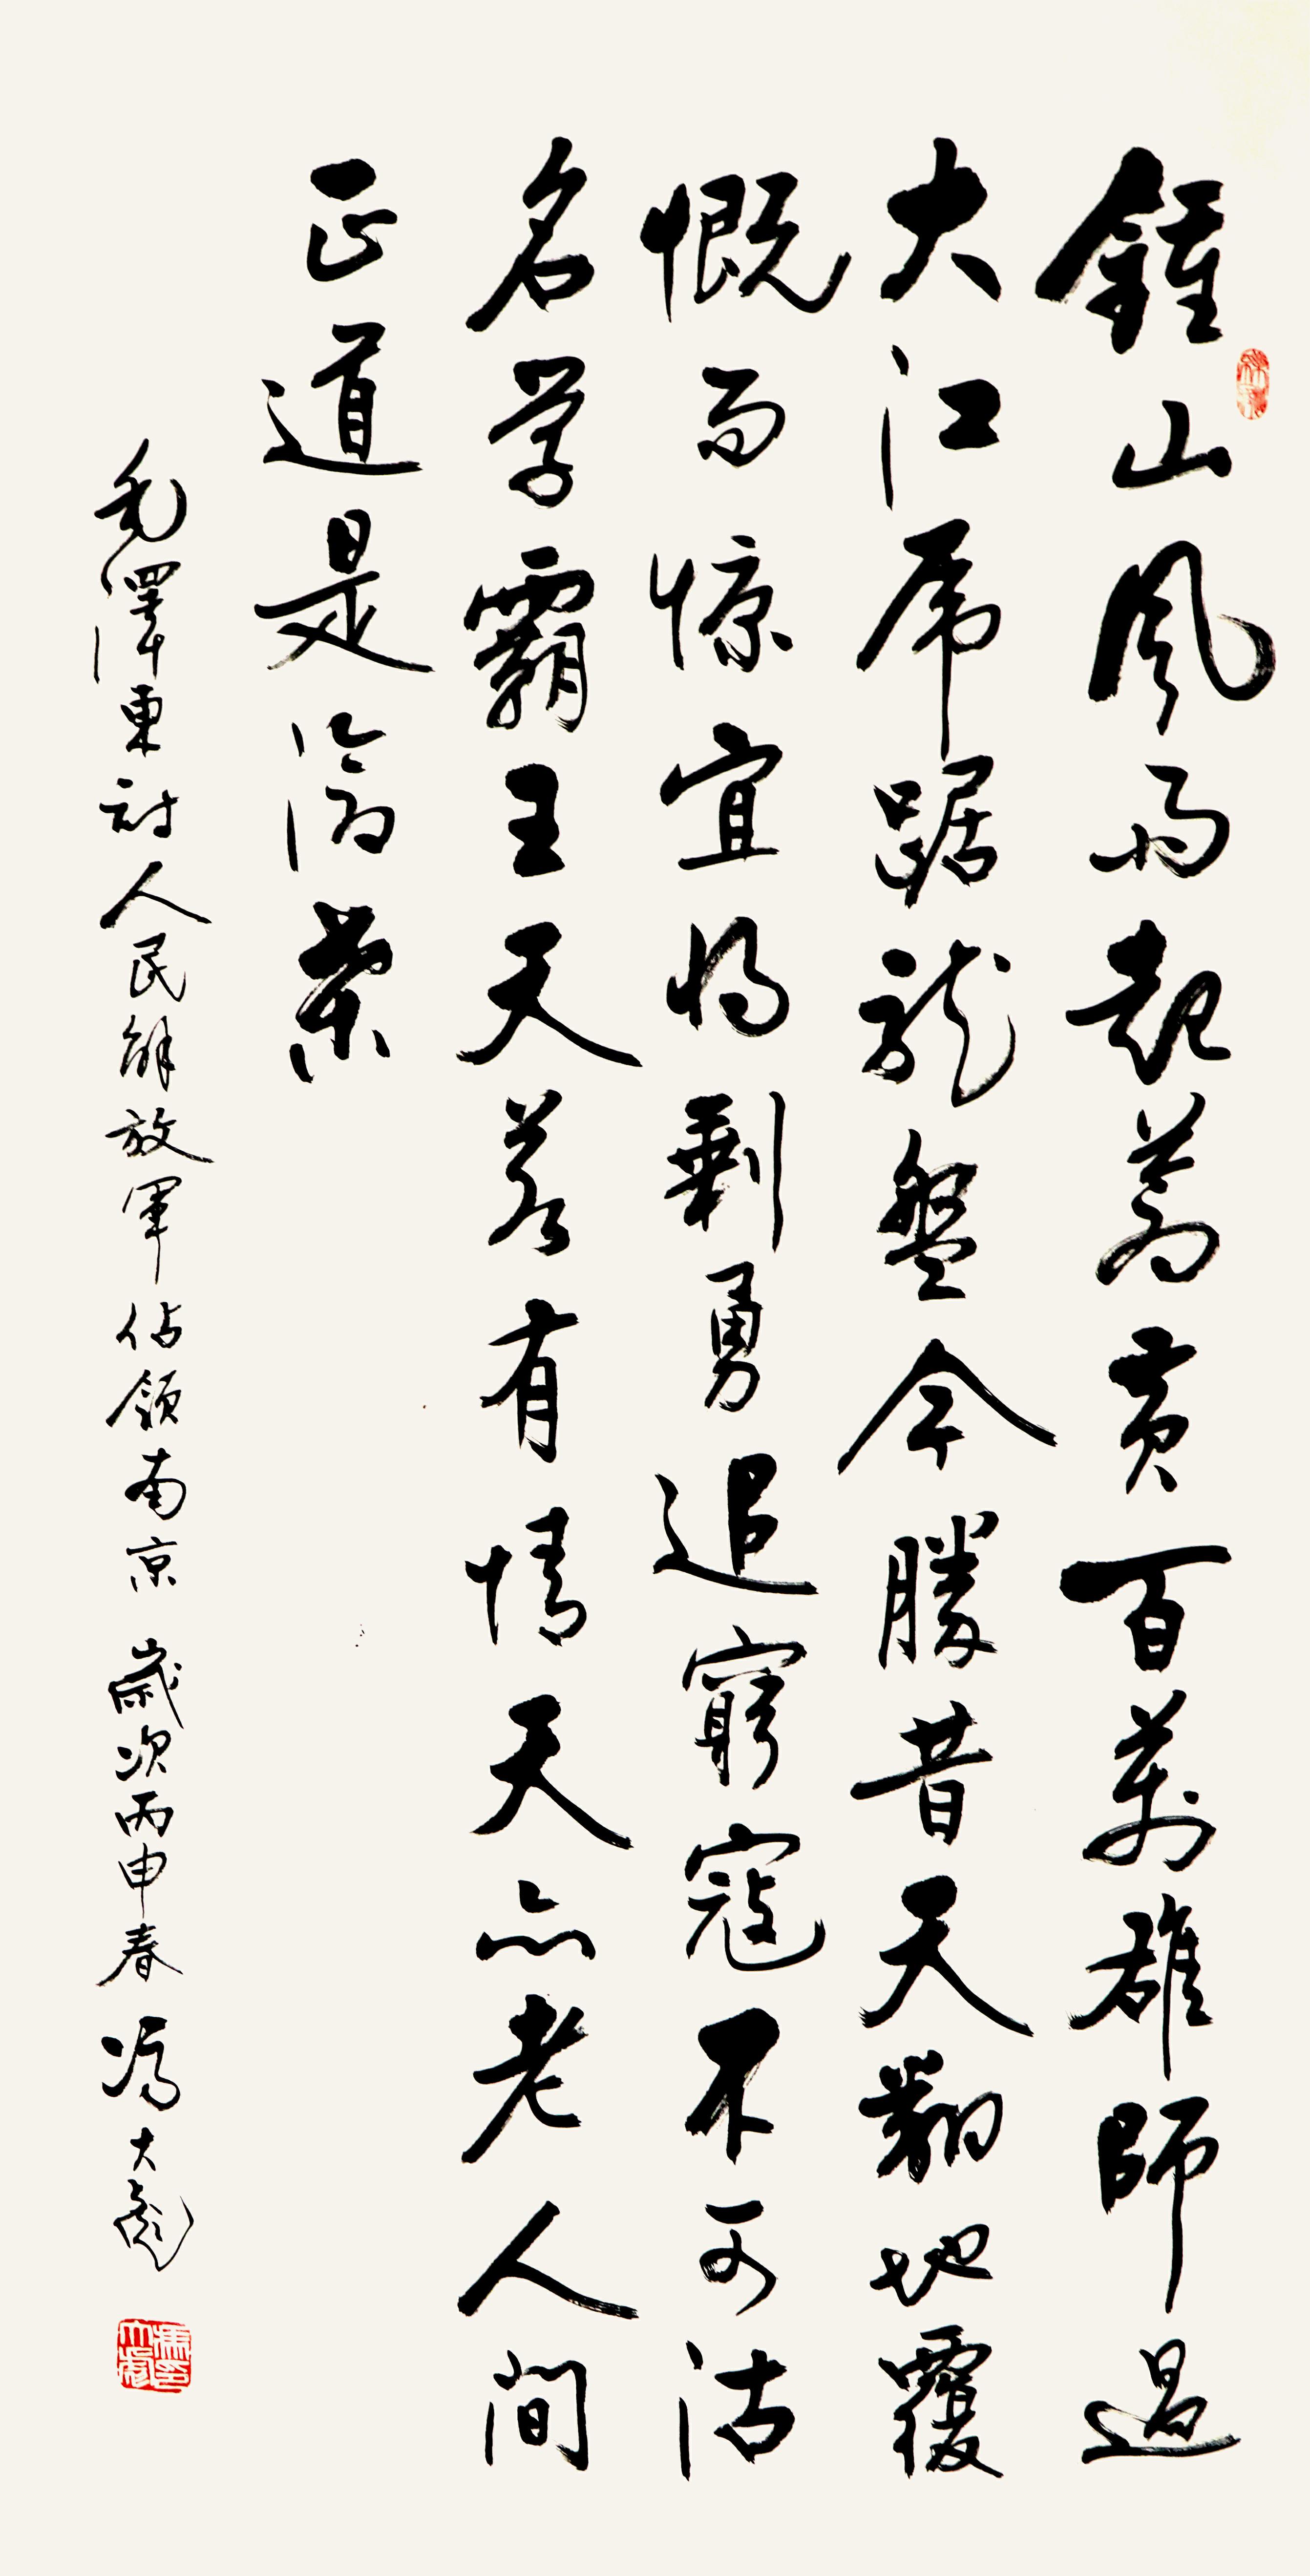 鍾山風雨起蒼黃百萬雄師過
大江虎踞龍盤今勝昔天翻地覆
慨而慷宜將剩勇追窮寇不可沽
名学霸王天若有情天亦老人間
正道是滄桑
毛澤東詩人民解放軍佔領南京 歲次丙申春 馮大彪